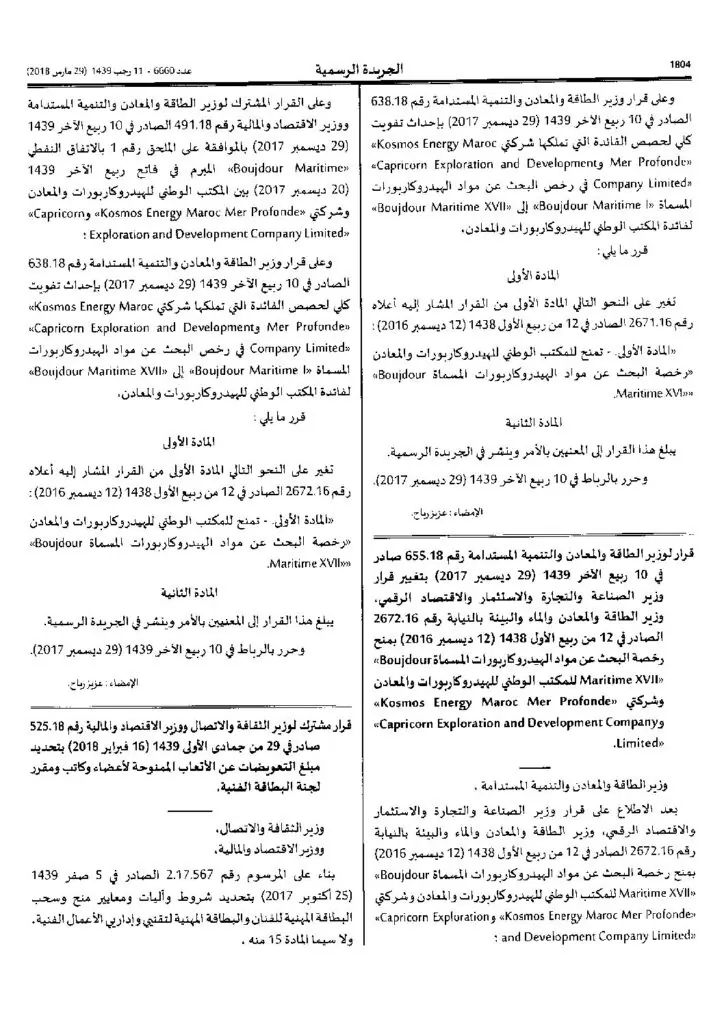 1804
الجريدة الرسمية
عدد 6660 - 11 رجب 1439 (29 مارس 2018)
وعلى قرار وزير الطاقة والمعادن والتنمية المستدامة رقم 638.18
الصادر في 10 ربيع الآخر 1439 (29 ديسمبر 2017) بإحداث تفويت
كلي لحصص الفائدة التي تملكها شركتي «Kosmos Energy Maroc
Mer Profonde» و«Capricorn Exploration and Development
Company Limited» في رخص البحث عن مواد الهيدروكاربورات
المسماة «Boujdour Maritime I» إلى «Boujdour Maritime XVII»
لفائدة المكتب الوطني للهيدروكاربورات والمعادن،
قرر ما يلي :
المادة الأولى
تغير على النحو التالي المادة الأولى من القرار المشار إليه أعلاه
رقم 2671.16 الصادر في 12 من ربيع الأول 1438 (12 ديسمبر 2016) :
«المادة الأولى. - تمنح للمكتب الوطني للهيدروكاربورات والمعادن
«رخصة البحث عن مواد الهيدروكاربورات المسماة «Boujdour
Maritime XVI»».
المادة الثانية
يبلغ هذا القرار إلى المعنيين بالأمر وينشر في الجريدة الرسمية.
وحرر بالرباط في 10 ربيع الآخر 1439 (29 ديسمبر 2017).
الإمضاء : عزيز رباح.
قرار لوزير الطاقة والمعادن والتنمية المستدامة رقم 655.18 صادر
في 10 ربيع الآخر 1439 (29 ديسمبر 2017) بتغيير قرار
وزير الصناعة والتجارة والاستثمار والاقتصاد الرقمي،
وزير الطاقة والمعادن والماء والبيئة بالنيابة رقم 2672.16
الصادر في 12 من ربيع الأول 1438 (12 ديسمبر 2016) بمنح
رخصة البحث عن مواد الهيدروكاربورات المسماة «Boujdour
Maritime XVII» للمكتب الوطني للهيدروكاربورات والمعادن
وشركتي «Kosmos Energy Maroc Mer Profonde»
و«Capricorn Exploration and Development Company
Limited».
وزير الطاقة والمعادن والتنمية المستدامة ،
بعد الاطلاع على قرار وزير الصناعة والتجارة والاستثمار
والاقتصاد الرقمي، وزير الطاقة والمعادن والماء والبيئة بالنيابة
رقم 2672.16 الصادر في 12 من ربيع الأول 1438 (12 ديسمبر 2016)
بمنح رخصة البحث عن مواد الهيدروكاربورات المسماة «Boujdour
Maritime XVII» للمكتب الوطني للهيدروكاربورات والمعادن وشركتي
«Kosmos Energy Maroc Mer Profonde» و«Capricorn Exploration
and Development Company Limited» ؛
وعلى القرار المشترك لوزير الطاقة والمعادن والتنمية المستدامة
ووزير الاقتصاد والمالية رقم 491.18 الصادر في 10 ربيع الآخر 1439
(29 ديسمبر 2017) بالموافقة على الملحق رقم 1 بالاتفاق النفطي
«Boujdour Maritime» المبرم في فاتح ربيع الآخر 1439
(20 ديسمبر 2017) بين المكتب الوطني للهيدروكاربورات والمعادن
وشركتي «Kosmos Energy Maroc Mer Profonde» و«Capricorn
Exploration and Development Company Limited» ؛
وعلى قرار وزير الطاقة والمعادن والتنمية المستدامة رقم 638.18
الصادر في 10 ربيع الآخر 1439 (29 ديسمبر 2017) بإحداث تفويت
كلي لحصص الفائدة التي تملكها شركتي «Kosmos Energy Maroc
Mer Profonde» و«Capricorn Exploration and Development
Company Limited» في رخص البحث عن مواد الهيدروكاربورات
المسماة «Boujdour Maritime I» إلى «Boujdour Maritime XVII»
لفائدة المكتب الوطني للهيدروكاربورات والمعادن،
قرر ما يلي :
المادة الأولى
تغير على النحو التالي المادة الأولى من القرار المشار إليه أعلاه
رقم 2672.16 الصادر في 12 من ربيع الأول 1438 (12 ديسمبر 2016) :
«المادة الأولى. - تمنح للمكتب الوطني للهيدروكاربورات والمعادن
«رخصة البحث عن مواد الهيدروكاربورات المسماة «Boujdour
Maritime XVII»».
المادة الثانية
يبلغ هذا القرار إلى المعنيين بالأمر وينشر في الجريدة الرسمية.
وحرر بالرباط في 10 ربيع الآخر 1439 (29 ديسمبر 2017).
الإمضاء : عزيز رباح.
قرار مشترك لوزير الثقافة والاتصال ووزير الاقتصاد والمالية رقم 525.18
صادر في 29 من جمادى الأولى 1439 (16 فبراير 2018) بتحديد
مبلغ التعويضات عن الأتعاب الممنوحة لأعضاء وكاتب ومقرر
لجنة البطاقة الفنية.
وزير الثقافة والاتصال،
ووزير الاقتصاد والمالية،
بناء على المرسوم رقم 2.17.567 الصادر في 5 صفر 1439
(25 أكتوبر 2017) بتحديد شروط وآليات ومعايير منح وسحب
البطاقة المهنية للفنان والبطاقة المهنية لتقنيي وإداريي الأعمال الفنية،
ولا سيما المادة 15 منه ،